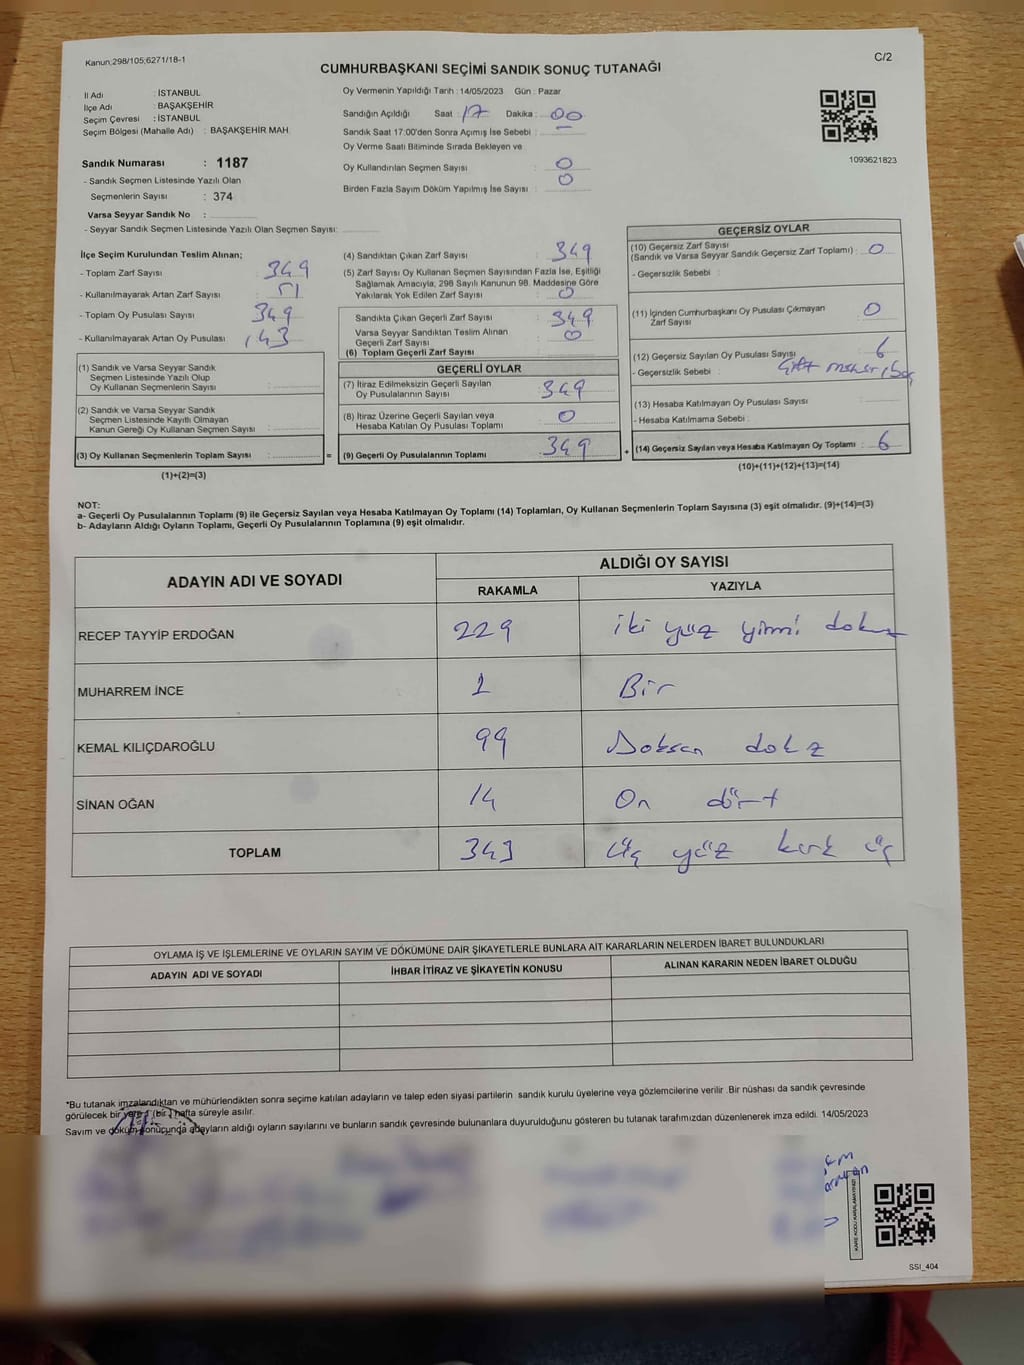 Kanun;298/105;6271/18-1
C/2
CUMHURBAŞKANI SEÇİMİ SANDIK SONUÇ TUTANAĞI
İl Adı : İSTANBUL
İlçe Adı : BAŞAKŞEHİR
Seçim Çevresi : İSTANBUL
Seçim Bölgesi (Mahalle Adı) : BAŞAKŞEHİR MAH.
Sandık Numarası : 1187
- Sandık Seçmen Listesinde Yazılı Olan
Seçmenlerin Sayısı : 374
Varsa Seyyar Sandık No :
- Seyyar Sandık Seçmen Listesinde Yazılı Olan Seçmen Sayısı:
Oy Vermenin Yapıldığı Tarih : 14/05/2023 Gün : Pazar
Sandığın Açıldığı Saat : 17 Dakika : 00
Sandık Saat 17:00'den Sonra Açımış İse Sebebi : —
Oy Verme Saati Bitiminde Sırada Bekleyen ve
Oy Kullandırılan Seçmen Sayısı : 0
Birden Fazla Sayım Döküm Yapılmış İse Sayısı : 0
1093621823
İlçe Seçim Kurulundan Teslim Alınan;
- Toplam Zarf Sayısı : 349
- Kullanılmayarak Artan Zarf Sayısı : 51
- Toplam Oy Pusulası Sayısı : 349
- Kullanılmayarak Artan Oy Pusulası : 143
(1) Sandık ve Varsa Seyyar Sandık
Seçmen Listesinde Yazılı Olup
Oy Kullanan Seçmenlerin Sayısı :
(2) Sandık ve Varsa Seyyar Sandık
Seçmen Listesinde Kayıtlı Olmayan
Kanun Gereği Oy Kullanan Seçmen Sayısı :
(3) Oy Kullanan Seçmenlerin Toplam Sayısı :
(1)+(2)=(3)
(4) Sandıktan Çıkan Zarf Sayısı : 349
(5) Zarf Sayısı Oy Kullanan Seçmen Sayısından Fazla İse, Eşitliği
Sağlamak Amacıyla, 298 Sayılı Kanunun 98. Maddesine Göre
Yakılarak Yok Edilen Zarf Sayısı : 0
Sandıkta Çıkan Geçerli Zarf Sayısı : 349
Varsa Seyyar Sandıktan Teslim Alınan
Geçerli Zarf Sayısı : 0
(6) Toplam Geçerli Zarf Sayısı
GEÇERLİ OYLAR
(7) İtiraz Edilmeksizin Geçerli Sayılan
Oy Pusulalarının Sayısı : 349
(8) İtiraz Üzerine Geçerli Sayılan veya
Hesaba Katılan Oy Pusulası Toplamı : 0
= (9) Geçerli Oy Pusulalarının Toplamı : 349 +
GEÇERSİZ OYLAR
(10) Geçersiz Zarf Sayısı
(Sandık ve Varsa Seyyar Sandık Geçersiz Zarf Toplamı) : 0
- Geçersizlik Sebebi :
(11) İçinden Cumhurbaşkanı Oy Pusulası Çıkmayan
Zarf Sayısı : 0
(12) Geçersiz Sayılan Oy Pusulası Sayısı : 6
- Geçersizlik Sebebi : Çift mühür,
(13) Hesaba Katılmayan Oy Pusulası Sayısı :
- Hesaba Katılmama Sebebi :
(14) Geçersiz Sayılan veya Hesaba Katılmayan Oy Toplamı : 6
(10)+(11)+(12)+(13)=(14)
NOT:
a- Geçerli Oy Pusulalarının Toplamı (9) ile Geçersiz Sayılan veya Hesaba Katılmayan Oy Toplamı (14) Toplamları, Oy Kullanan Seçmenlerin Toplam Sayısına (3) eşit olmalıdır. (9)+(14)=(3)
b- Adayların Aldığı Oyların Toplamı, Geçerli Oy Pusulalarının Toplamına (9) eşit olmalıdır.
ADAYIN ADI VE SOYADI ALDIĞI OY SAYISI
RAKAMLA YAZIYLA
RECEP TAYYİP ERDOĞAN 229 iki yüz yirmi dokuz
MUHARREM İNCE 1 Bir
KEMAL KILIÇDAROĞLU 99 Doksan dokz
SİNAN OĞAN 14 On dört
TOPLAM 343 Üç yüz kırk üç
OYLAMA İŞ VE İŞLEMLERİNE VE OYLARIN SAYIM VE DÖKÜMÜNE DAİR ŞİKAYETLERLE BUNLARA AİT KARARLARIN NELERDEN İBARET BULUNDUKLARI
ADAYIN ADI VE SOYADI İHBAR İTİRAZ VE ŞİKAYETİN KONUSU ALINAN KARARIN NEDEN İBARET OLDUĞU
*Bu tutanak imzalandıktan ve mühürlendikten sonra seçime katılan adayların ve talep eden siyasi partilerin sandık kurulu üyelerine veya gözlemcilerine verilir .Bir nüshası da sandık çevresinde
görülecek bir yere 1 (bir ) hafta süreyle asılır.
Sayım ve döküm sonucunda adayların aldığı oyların sayılarını ve bunların sandık çevresinde bulunanlara duyurulduğunu gösteren bu tutanak tarafımızdan düzenlenerek imza edildi. 14/05/2023
KARE KODU KARALAMAYINIZ!
SSI_404